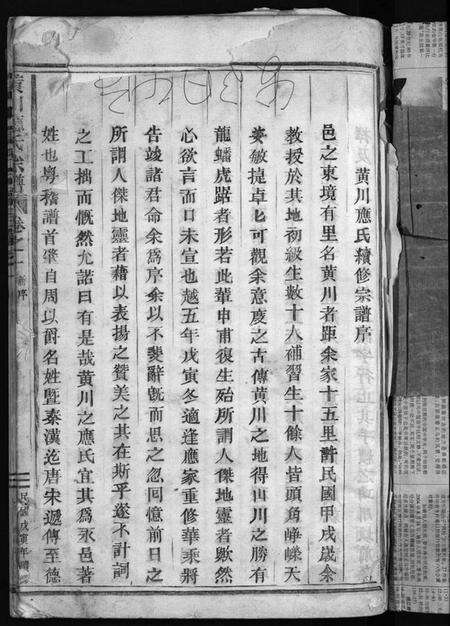 黃川應氏續修宗譜序
邑之東境有里名黃川者距余家十五里許民國甲戌歲余
教授於其地初級生數十人補習生十餘人皆頭角崢嶸天
姿敏捷卓卓可觀余意度之古傳黃川之地得山川之勝有
龍蟠虎踞者形若此輩申甫復生殆所謂人傑地靈者歟然
心欲言而口未宣也越五年戊寅冬適逢應家重修華乘將
告竣諸君命余爲序余以不斐辭旣而思之忽囘憶前日之
所謂人傑地靈者藉以表揚之贊美之其在斯乎遂不計詞
之工拙而慨然允諾曰有是哉黃川之應氏宜其爲永邑著
姓也粤稽譜首肇自周以爵名姓暨秦漢迄唐宋遞傳至德
黃川應氏宗譜 卷之一 新序
民國戊寅年